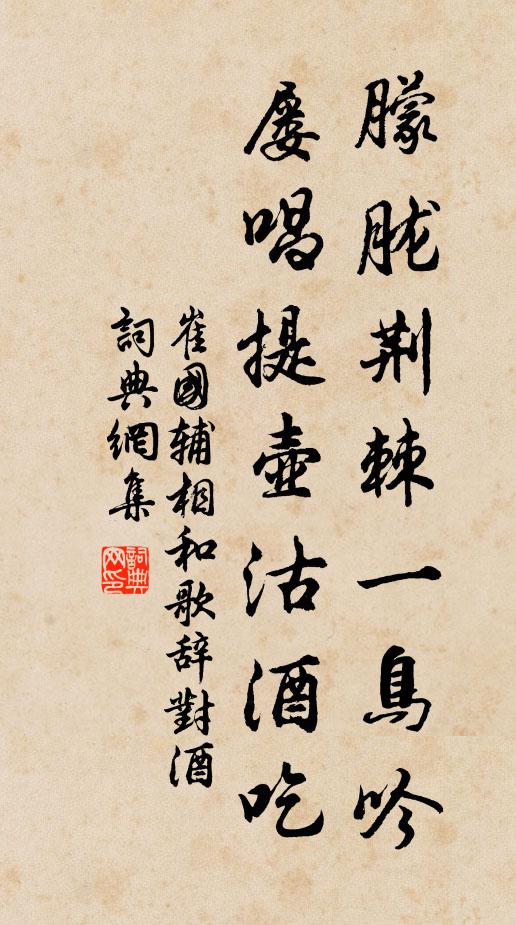 朦朧荆棘一鳥吟
屡唱提壺沽酒吃
崔國辅相和歌辞對酒
詞典網集
詞典网印